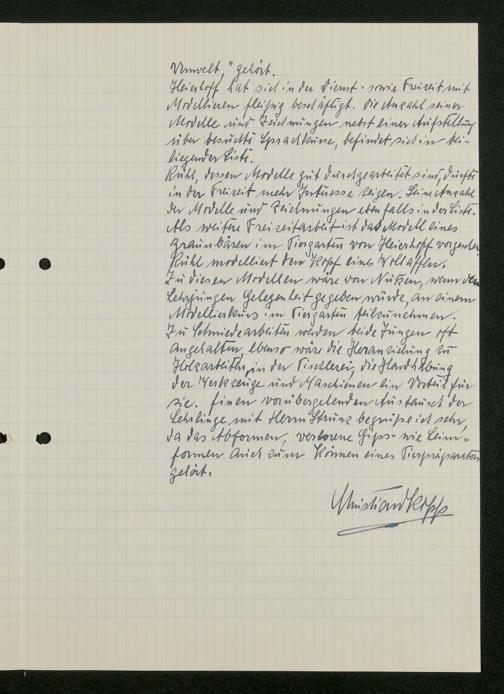 Umwelt," gehört.
Heierhoff hat sich in der Dienst- sowie Freizeit mit
Modellieren fleißig beschäftigt. Die Anzahl seiner
Modelle und Zeichnungen nebst einer Aufstellung
über besuchte Sprachkurse, befindet sich in bei-
liegender Liste.
Rühl, dessen Modelle gut durchgearbeitet sind, dürfte
in der Freizeit mehr Interesse zeigen. Seine Anzahl
der Modelle und Zeichnungen ebenfalls in der Liste.
Als weitere Freizeitarbeit ist das Modell eines
Braunbären im Tiergarten von Heierhoff vorgesehen
Rühl modelliert den Kopf eines Wollaffen.
Zu diesen Modellen wäre von Nutzen, wenn den
Lehrjungen Gelegenheit gegeben würde, an einem
Modellierkurs im Tiergarten teilzunehmen.
Zu Schmiedearbeiten werden beide Jungen oft
angehalten, ebenso wäre die Heranziehung zu
Holzarbeiten, in der Tischlerei, die Handhabung
der Werkzeuge und Maschienen ein Vorteil für
sie. Einen vorübergehenden Austausch der
Lehrlinge mit Herrn Strunz begrüße ich sehr,
da das Abformen, verlorene Gips- wie Leim-
formen auch zum Können eines Tierpräparators
gehört.
Christian Kopp